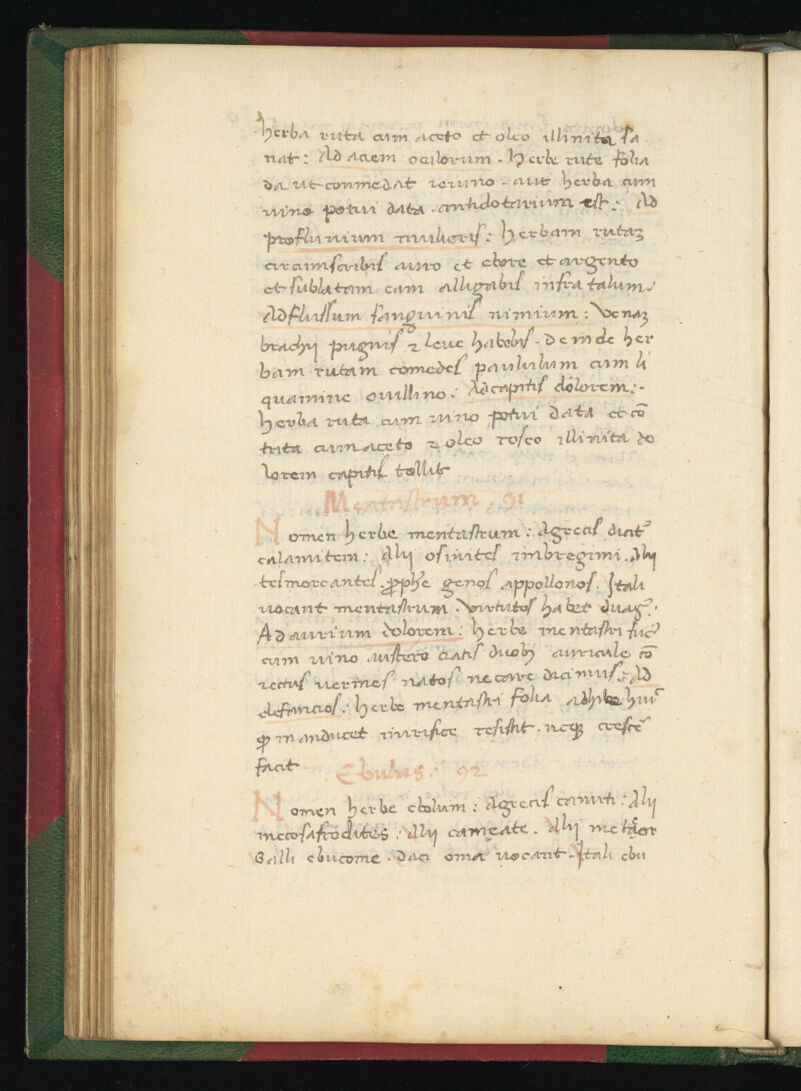 herba ruta cum aceto et oleo illinita sa
nat: Ad aciem oculorum. herbe rute folia
da ut conmedat ieiuno. aut herba cum
uino potui data. antidotarium est: Ad
profluuium mulieris: herbam rutaʒ
circumscribis auro et ebore et argento
et sublatam eam alligabis infra talum.
Ad flussum sanguinis nimium: Venaʒ
brachij pugnis ⁊ leue habebis. deinde her
bam rutam comedes paululum cum li
quamine ouillino: Ad capitis dolorem:-
herba ruta cum uino potui data et cō
trita cum aceto ⁊ oleo roseo illinita do
lorem capitis tollit
Mentastrum. 91
Nomen herbe mentastrum: Agrecis dicit᷑
calamitem: Alij osinites imbregimi. Alij
tesmoreantes. ꝓphe genos appollonos. Itali
uocant mentastrum. Virtutes habet duas.
Ad aurium dolorem: herbe mentastri suc᷑
cum uino austero ciatis duobꝫ auricule cō
iectus uermes natos necare dicimus: Ad
elefancios: herbe mentastri folia adhibe
ꝙ manducet mirifice resistit. neqꝫ cresce᷑
facit
Ebulus: 92
Nomen herbe ebolum: Agrecis camiti: Alij
mecosafrodites: Alij cameate. Alij
Galli ebucome. daci oma uocant. Itali ebu